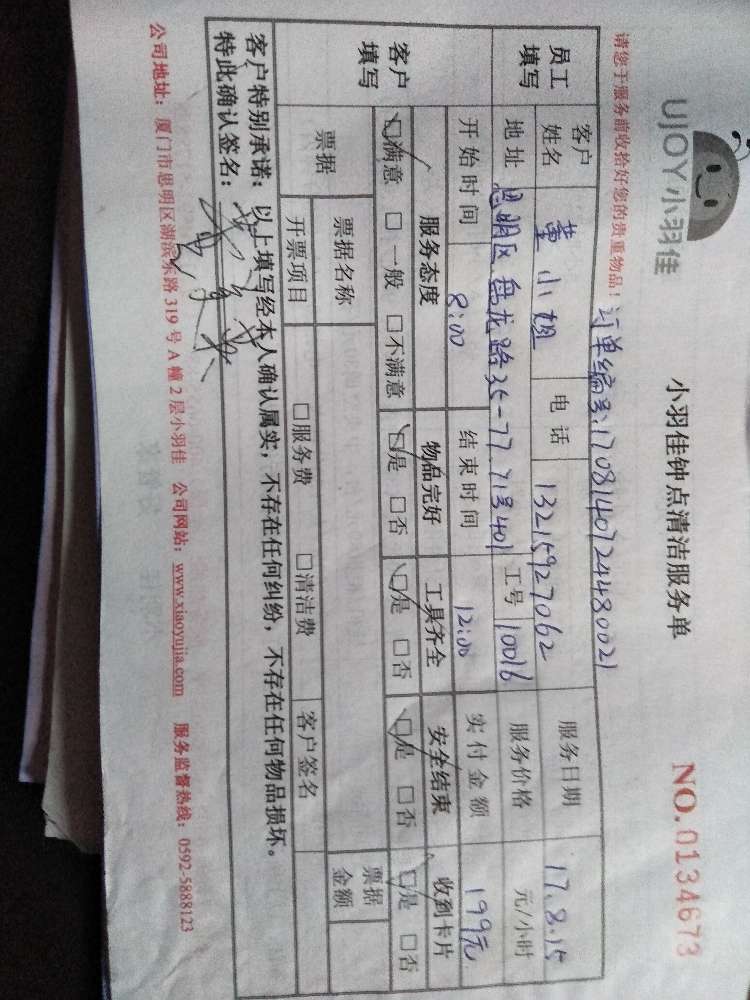 UJOY小羽佳
小羽佳钟点清洁服务单
NO.0134673
请您于服务前收拾好您的贵重物品！
订单编号:17081407244480021
员工填写
客户姓名 董小姐 电话 13215927062 服务日期 17.8.15
地址 思明区盘龙路35-77 71号401 工号 10016 服务价格 元/小时
开始时间 8:00 结束时间 12:00 实付金额 199元
客户填写
服务态度 物品完好 工具齐全 安全结束 收到卡片
☑满意 □一般 □不满意 ☑是 □否 ☑是 □否 ☑是 □否 ☑是 □否
票据 票据名称 票据金额
开票项目 □服务费 □清洁费 客户签名
客户特别承诺：以上填写经本人确认属实，不存在任何纠纷，不存在任何物品损坏。
特此确认签名：
公司地址：厦门市思明区湖滨东路319号A幢2层小羽佳 公司网站：www.xiaoyujia.com 服务监督热线：0592-5888123